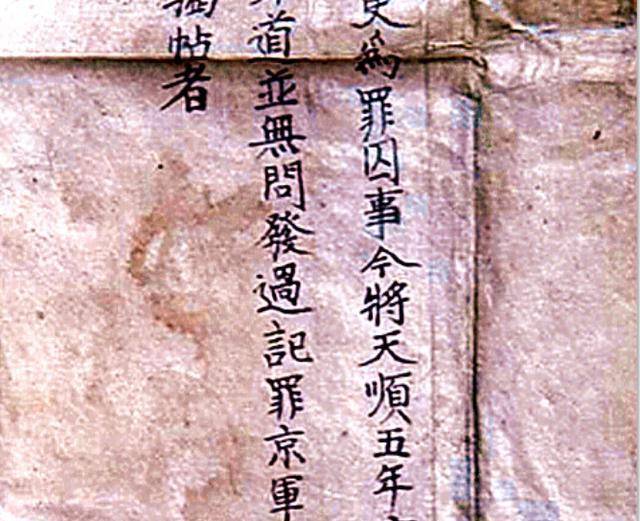 吏為罪囚事今將天順五年
道並無問發過記罪京軍
帖者